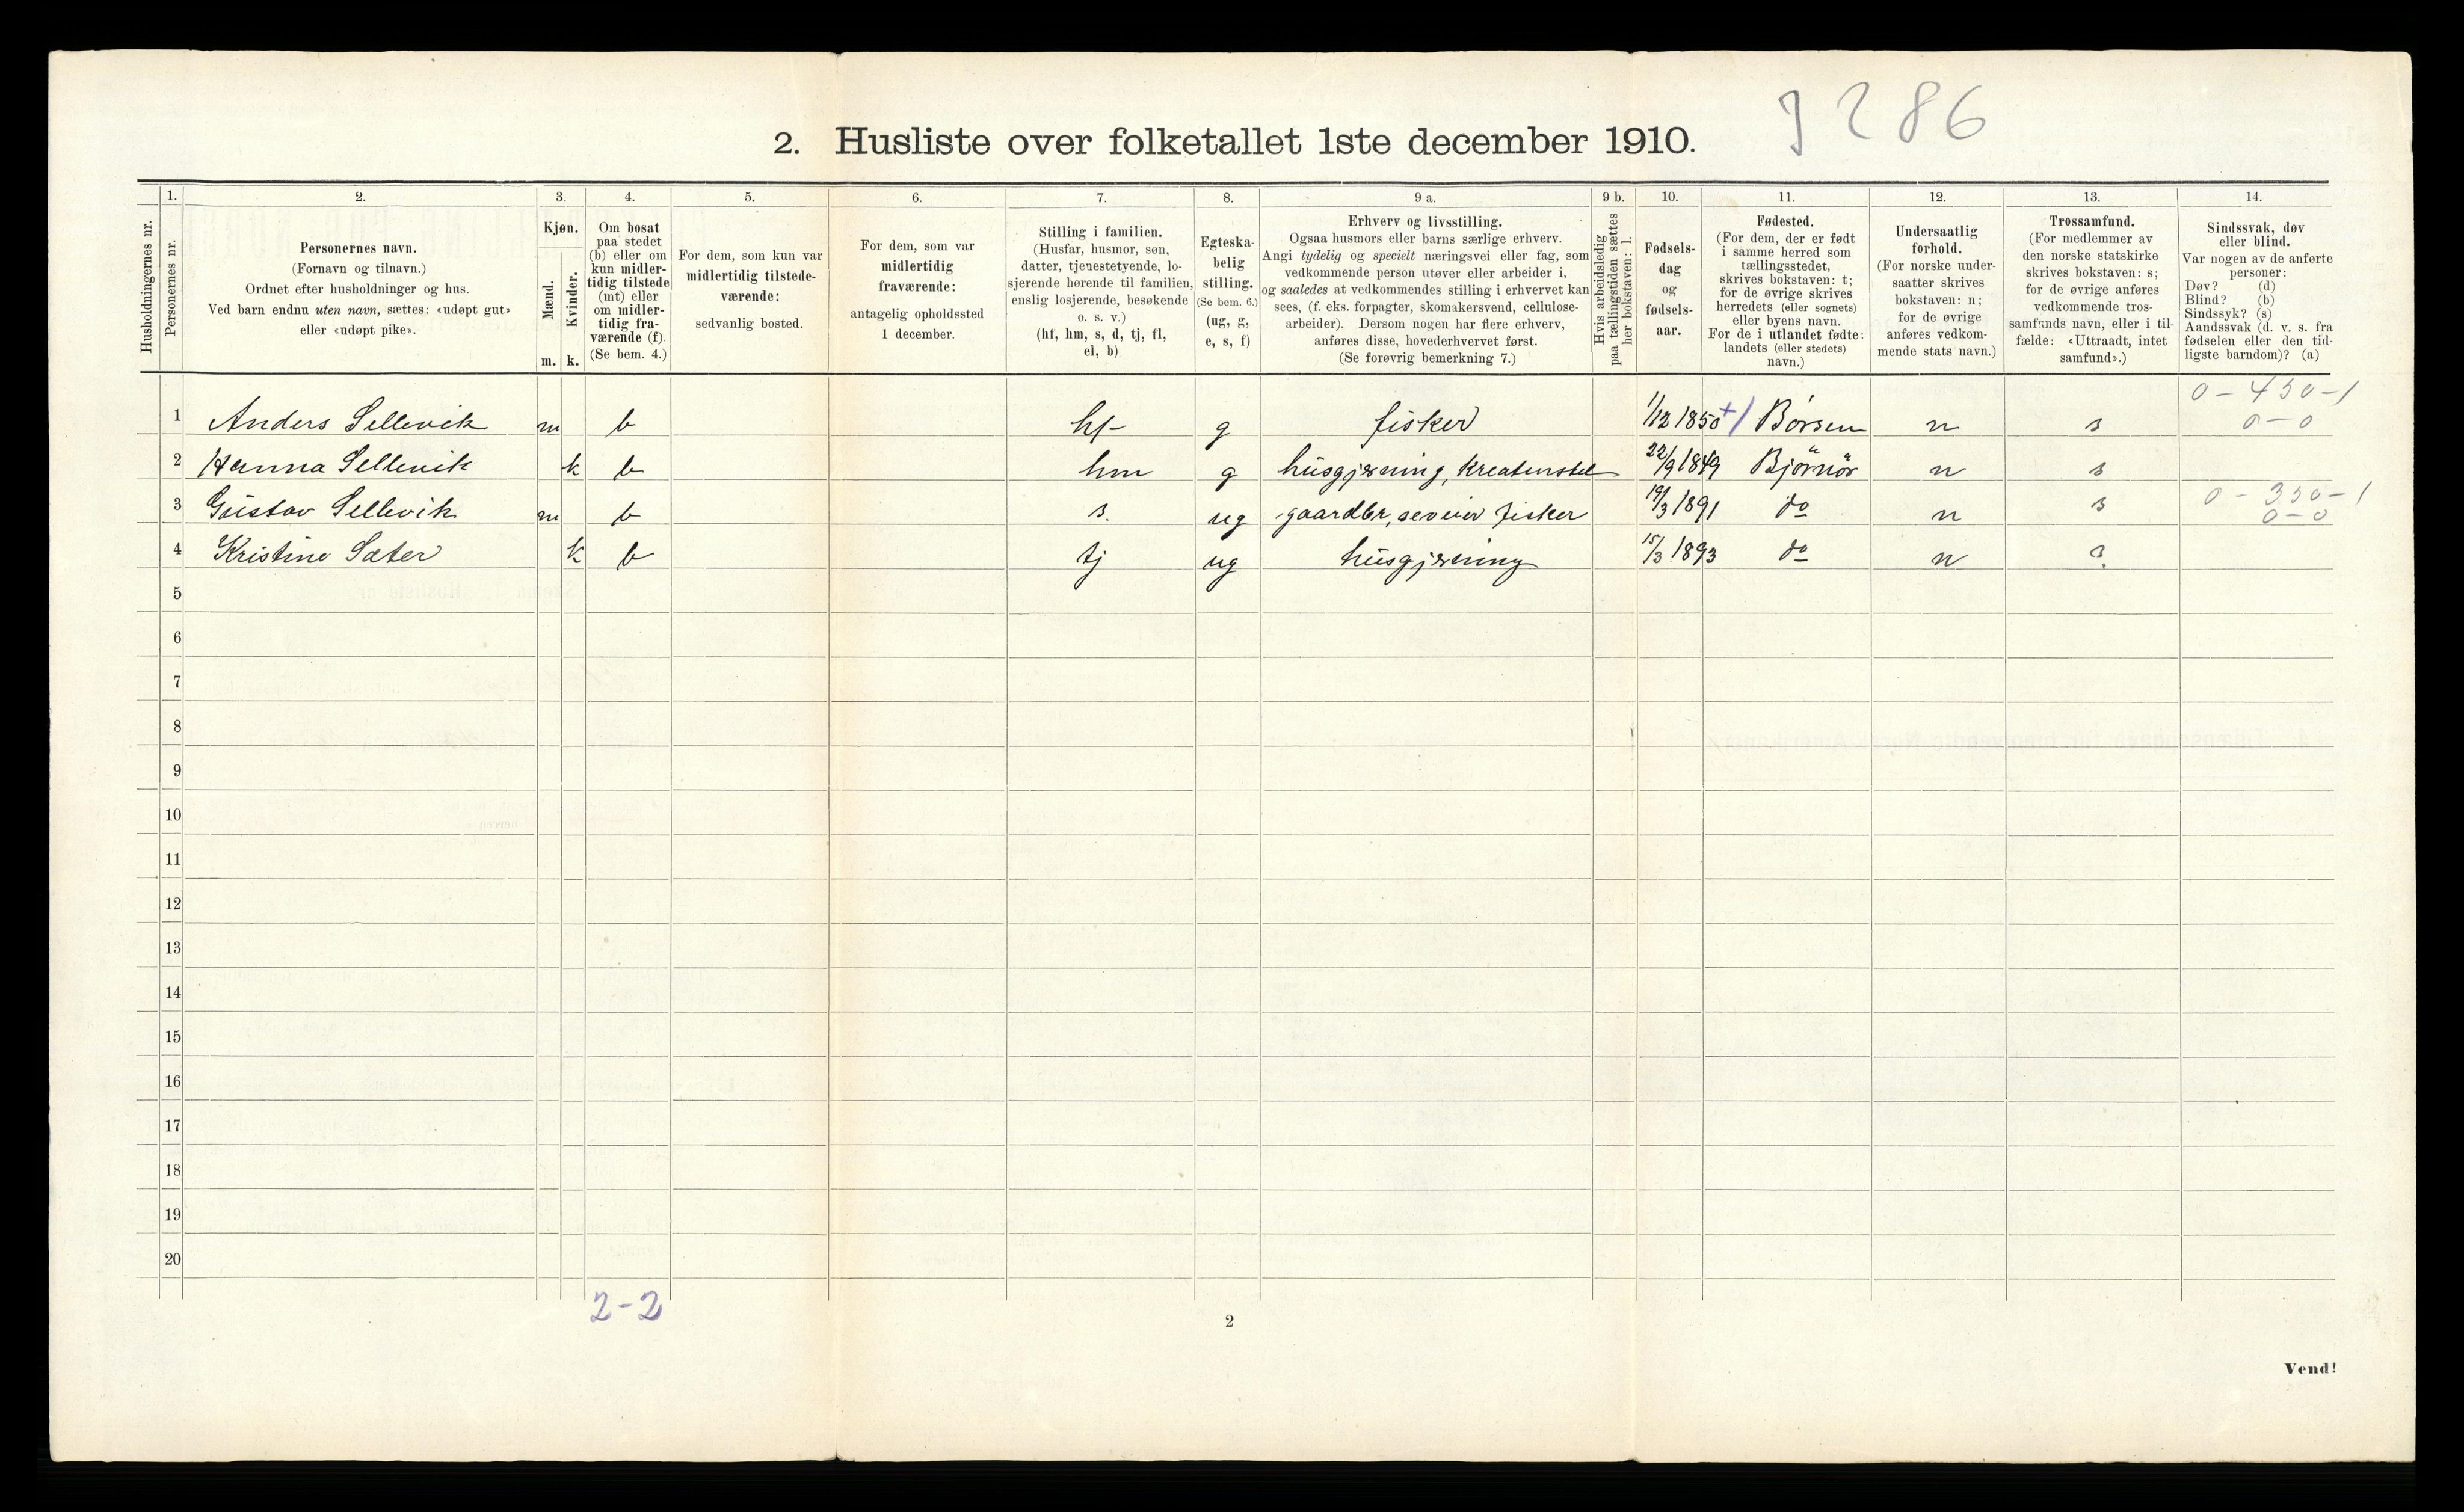 J 286
2. Husliste over folketallet 1ste december 1910.
Husholdningernes nr.
1.
Personernes nr.
2.
Personernes navn.
(Fornavn og tilnavn.)
Ordnet efter husholdninger og hus.
Ved barn endnu uten navn, sættes: «udøpt gut»
eller «udøpt pike».
3.
Kjøn.
Mænd.
Kvinder.
m. k.
4.
Om bosat
paa stedet
(b) eller om
kun midler-
tidig tilstede
(mt) eller
om midler-
tidig fra-
værende (f).
(Se bem. 4.)
5.
For dem, som kun var
midlertidig tilstede-
værende:
sedvanlig bosted.
6.
For dem, som var
midlertidig
fraværende:
antagelig opholdssted
1 december.
7.
Stilling i familien.
(Husfar, husmor, søn,
datter, tjenestetyende, lo-
sjerende hørende til familien,
enslig losjerende, besøkende
o. s. v.)
(hf, hm, s, d, tj, fl,
el, b)
8.
Egteska-
belig
stilling.
(Se bem. 6.)
(ug, g,
e, s, f)
9 a.
Erhverv og livsstilling.
Ogsaa husmors eller barns særlige erhverv.
Angi tydelig og specielt næringsvei eller fag, som
vedkommende person utøver eller arbeider i,
og saaledes at vedkommendes stilling i erhvervet kan
sees, (f. eks. forpagter, skomakersvend, cellulose-
arbeider). Dersom nogen har flere erhverv,
anføres disse, hovederhvervet først.
(Se forøvrig bemerkning 7.)
9 b.
Hvis arbeidsledig
paa tællingstiden sættes
her bokstaven: l.
10.
Fødsels-
dag
og
fødsels-
aar.
11.
Fødested.
(For dem, der er født
i samme herred som
tællingsstedet,
skrives bokstaven: t;
for de øvrige skrives
herredets (eller sognets)
eller byens navn.
For de i utlandet fødte:
landets (eller stedets)
navn.)
12.
Undersaatlig
forhold.
(For norske under-
saatter skrives
bokstaven: n;
for de øvrige
anføres vedkom-
mende stats navn.)
13.
Trossamfund.
(For medlemmer av
den norske statskirke
skrives bokstaven: s;
for de øvrige anføres
vedkommende tros-
samfunds navn, eller i til-
fælde: «Uttraadt, intet
samfund».)
14.
Sindssvak, døv
eller blind.
Var nogen av de anførte
personer:
Døv? (d)
Blind? (b)
Sindssyk? (s)
Aandssvak (d. v. s. fra
fødselen eller den tid-
ligste barndom)? (a)
0 - 450 - 1
1 Anders Sellevik m b hf g fisker 1/12 1850 +/ Börsen n s 0 - 0
2 Hanna Sellevik k b hm g husgjerning, kreaturstel 22/9 1849 Björnör n s
0 - 350 - 1
3 Gustav Sellevik m b s. ug gaardbr, selveier fisker 19/3 1891 do n s 0 - 0
4 Kristine Sæter k b tj ug husgjerning 15/3 1893 do n s
5
6
7
8
9
10
11
12
13
14
15
16
17
18
19
20
2 - 2
2
Vend!